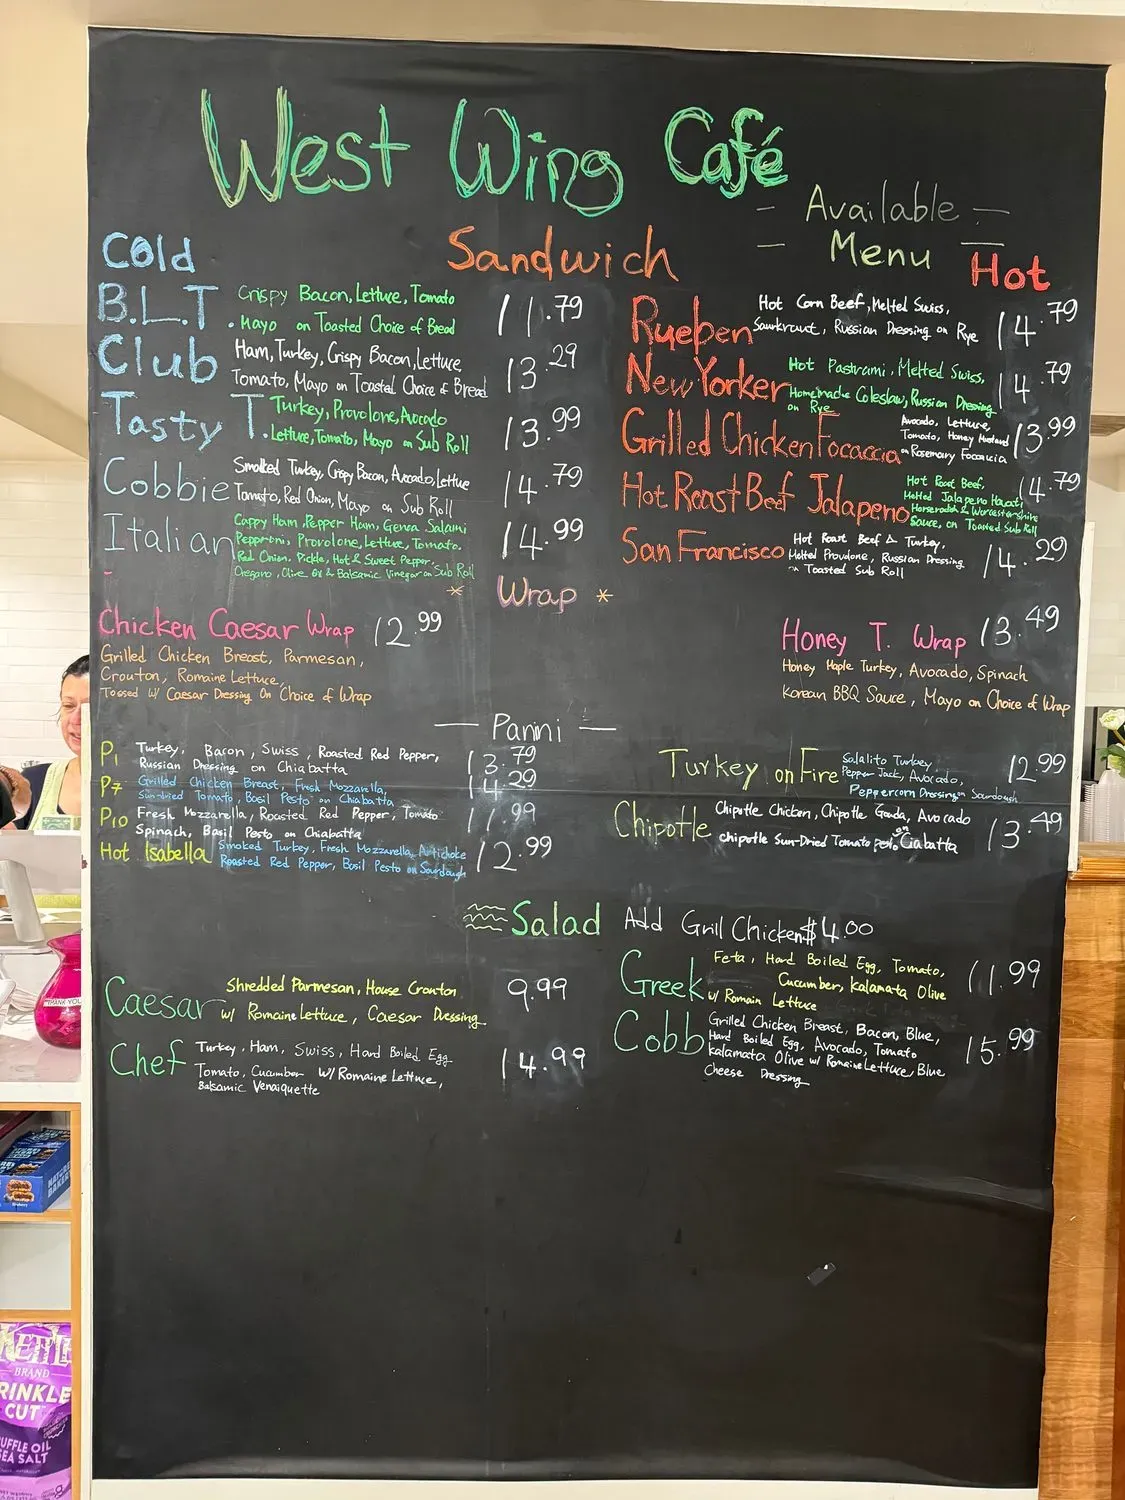 West Wing Café
— Available —
— Menu —
Sandwich
Cold
B.L.T. Crispy Bacon, Lettuce, Tomato 11.79
Mayo on Toasted Choice of Bread
Club Ham, Turkey, Crispy Bacon, Lettuce 13.29
Tomato, Mayo on Toasted Choice of Bread
Tasty T. Turkey, Provolone, Avocado 13.99
Lettuce, Tomato, Mayo on Sub Roll
Cobbie Smoked Turkey, Crispy Bacon, Avocado, Lettuce 14.79
Tomato, Red Onion, Mayo on Sub Roll
Italian Cappy Ham, Pepper Ham, Genoa Salami 14.99
Pepperoni, Provolone, Lettuce, Tomato.
Red Onion, Pickle, Hot & Sweet Pepper,
Oregano, Olive Oil & Balsamic Vinegar on Sub Roll
Hot
Rueben Hot Corn Beef, Melted Swiss, 14.79
Saurkraut, Russian Dressing on Rye
New Yorker Hot Pastrami, Melted Swiss, 14.79
Homemade Coleslaw, Russian Dressing
on Rye
Grilled Chicken Focaccia Avocado, Lettuce, 13.99
Tomato, Honey Mustard
on Rosemary Focaccia
Hot Roast Beef Jalapeno Hot Roast Beef, 14.79
Melted Jalapeno Havati
Horseradish & Worcestershire
Sauce, on Toasted Sub Roll
San Francisco Hot Roast Beef & Turkey, 14.29
Melted Provolone, Russian Dressing
on Toasted Sub Roll
* Wrap *
Chicken Caesar Wrap 12.99
Grilled Chicken Breast, Parmesan,
Crouton, Romaine Lettuce,
Tossed W/ Caesar Dressing On Choice of Wrap
Honey T. Wrap 13.49
Honey Maple Turkey, Avocado, Spinach
Korean BBQ Sauce, Mayo on Choice of Wrap
— Panini —
P1 Turkey, Bacon, Swiss, Roasted Red Pepper, 13.79
Russian Dressing on Chiabatta
P7 Grilled Chicken Breast, Fresh Mozzarella, 14.29
Sun-dried Tomato, Basil Pesto on Chiabatta
P10 Fresh Mozzarella, Roasted Red Pepper, Tomato 11.99
Spinach, Basil Pesto on Chiabatta
Hot Isabella Smoked Turkey, Fresh Mozzarella, Artichoke 12.99
Roasted Red Pepper, Basil Pesto on Sourdough
Turkey on Fire Salalito Turkey 12.99
Pepper Jack, Avocado,
Peppercorn Dressing on Sourdough
Chipotle Chipotle Chicken, Chipotle Gouda, Avocado 13.49
chipotle Sun-Dried Tomato pesto on Ciabatta
Salad Add Grill Chicken $4.00
Caesar Shredded Parmesan, House Crouton 9.99
w/ Romaine Lettuce, Caesar Dressing
Chef Turkey, Ham, Swiss, Hard Boiled Egg 14.99
Tomato, Cucumber W/ Romaine Lettuce,
Balsamic Venaiquette
Greek Feta, Hard Boiled Egg, Tomato, 11.99
Cucumber, Kalamata Olive
w/ Romain Lettuce
Cobb Grilled Chicken Breast, Bacon, Blue, 15.99
Hard Boiled Egg, Avocado, Tomato
Kalamata Olive w/ Romaine Lettuce, Blue
Cheese Dressing
THANK YOU
KETTLE
BRAND
RINKLE
CUT
UFFLE OIL
SEA SALT